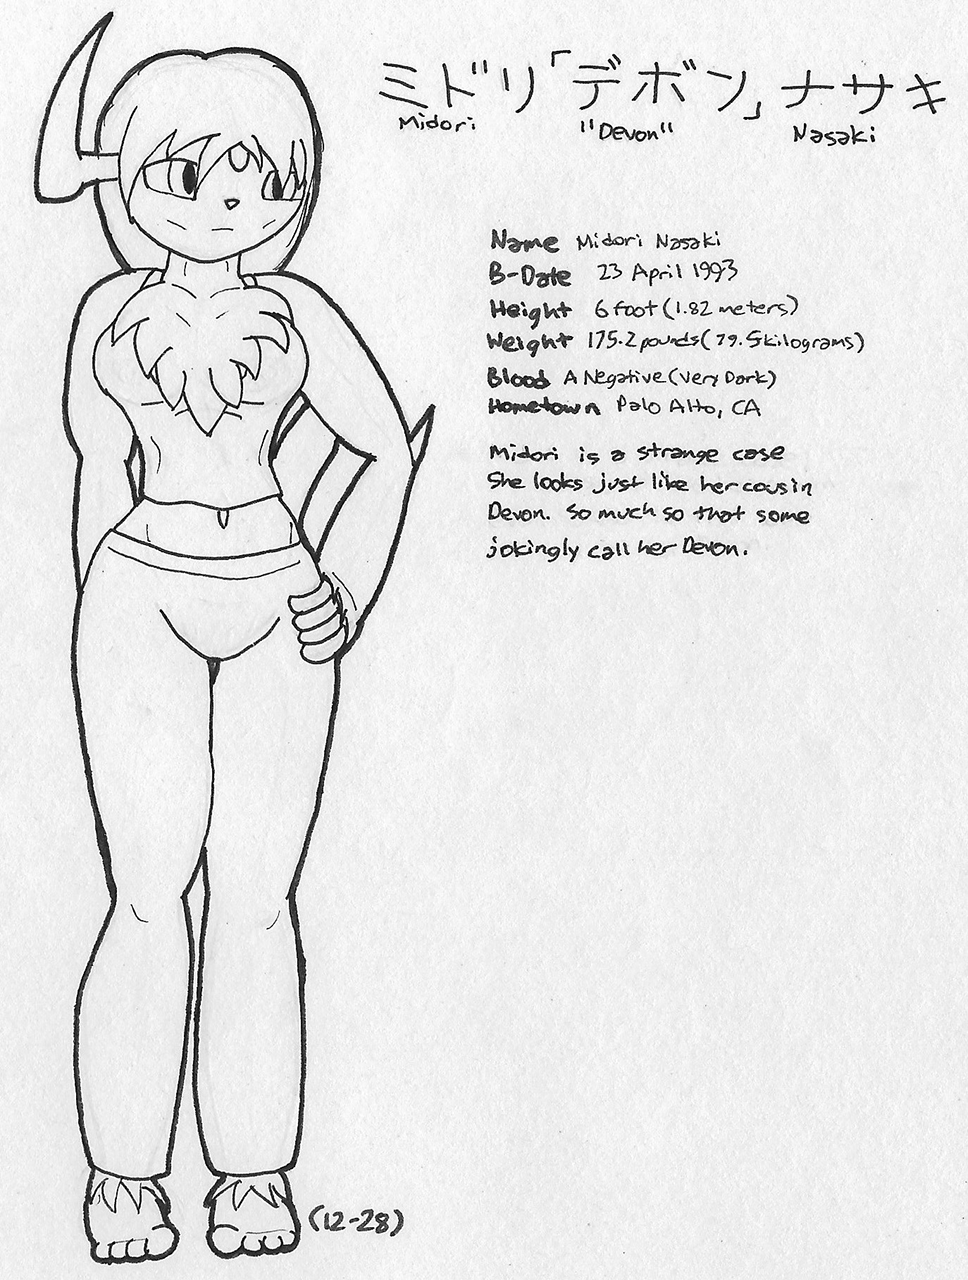 ミドリ「デボン」ナサキ
Midori "Devon" Nasaki
Name Midori Nasaki
B-Date 23 April 1993
Height 6 foot (1.82 meters)
Weight 175.2 pounds (79.5 kilograms)
Blood A Negative (Very Dark)
Hometown Palo Alto, CA
Midori is a strange case
She looks just like her cousin
Devon. So much so that some
jokingly call her Devon.
(12-28)